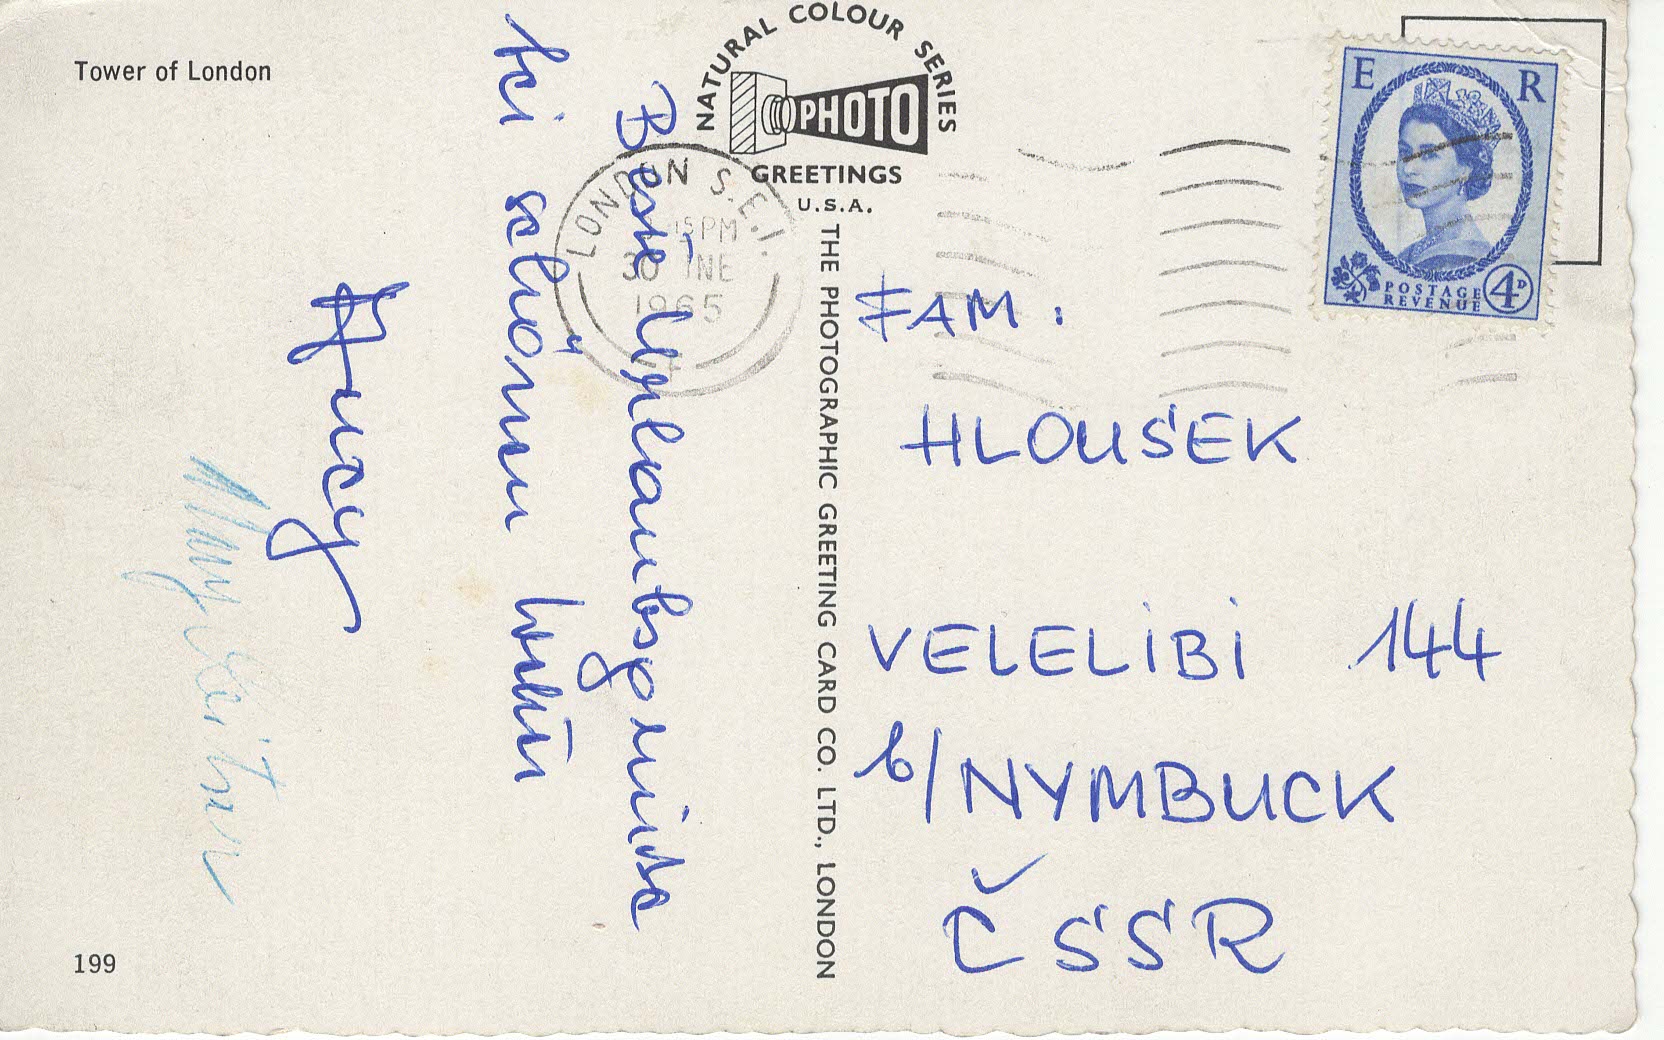 Tower of London
NATURAL COLOUR SERIES
PHOTO
GREETINGS
U.S.A.
E R
POSTAGE
REVENUE
4D
LONDON S.E.1.
15 PM
30 JNE
1965
Beste Urlaubsgrüsse
bei schönem Wetter
THE PHOTOGRAPHIC GREETING CARD CO. LTD., LONDON
FAM:
HLOUŠEK
VELELIBI 144
b/NYMBUCK
ČSSR
199